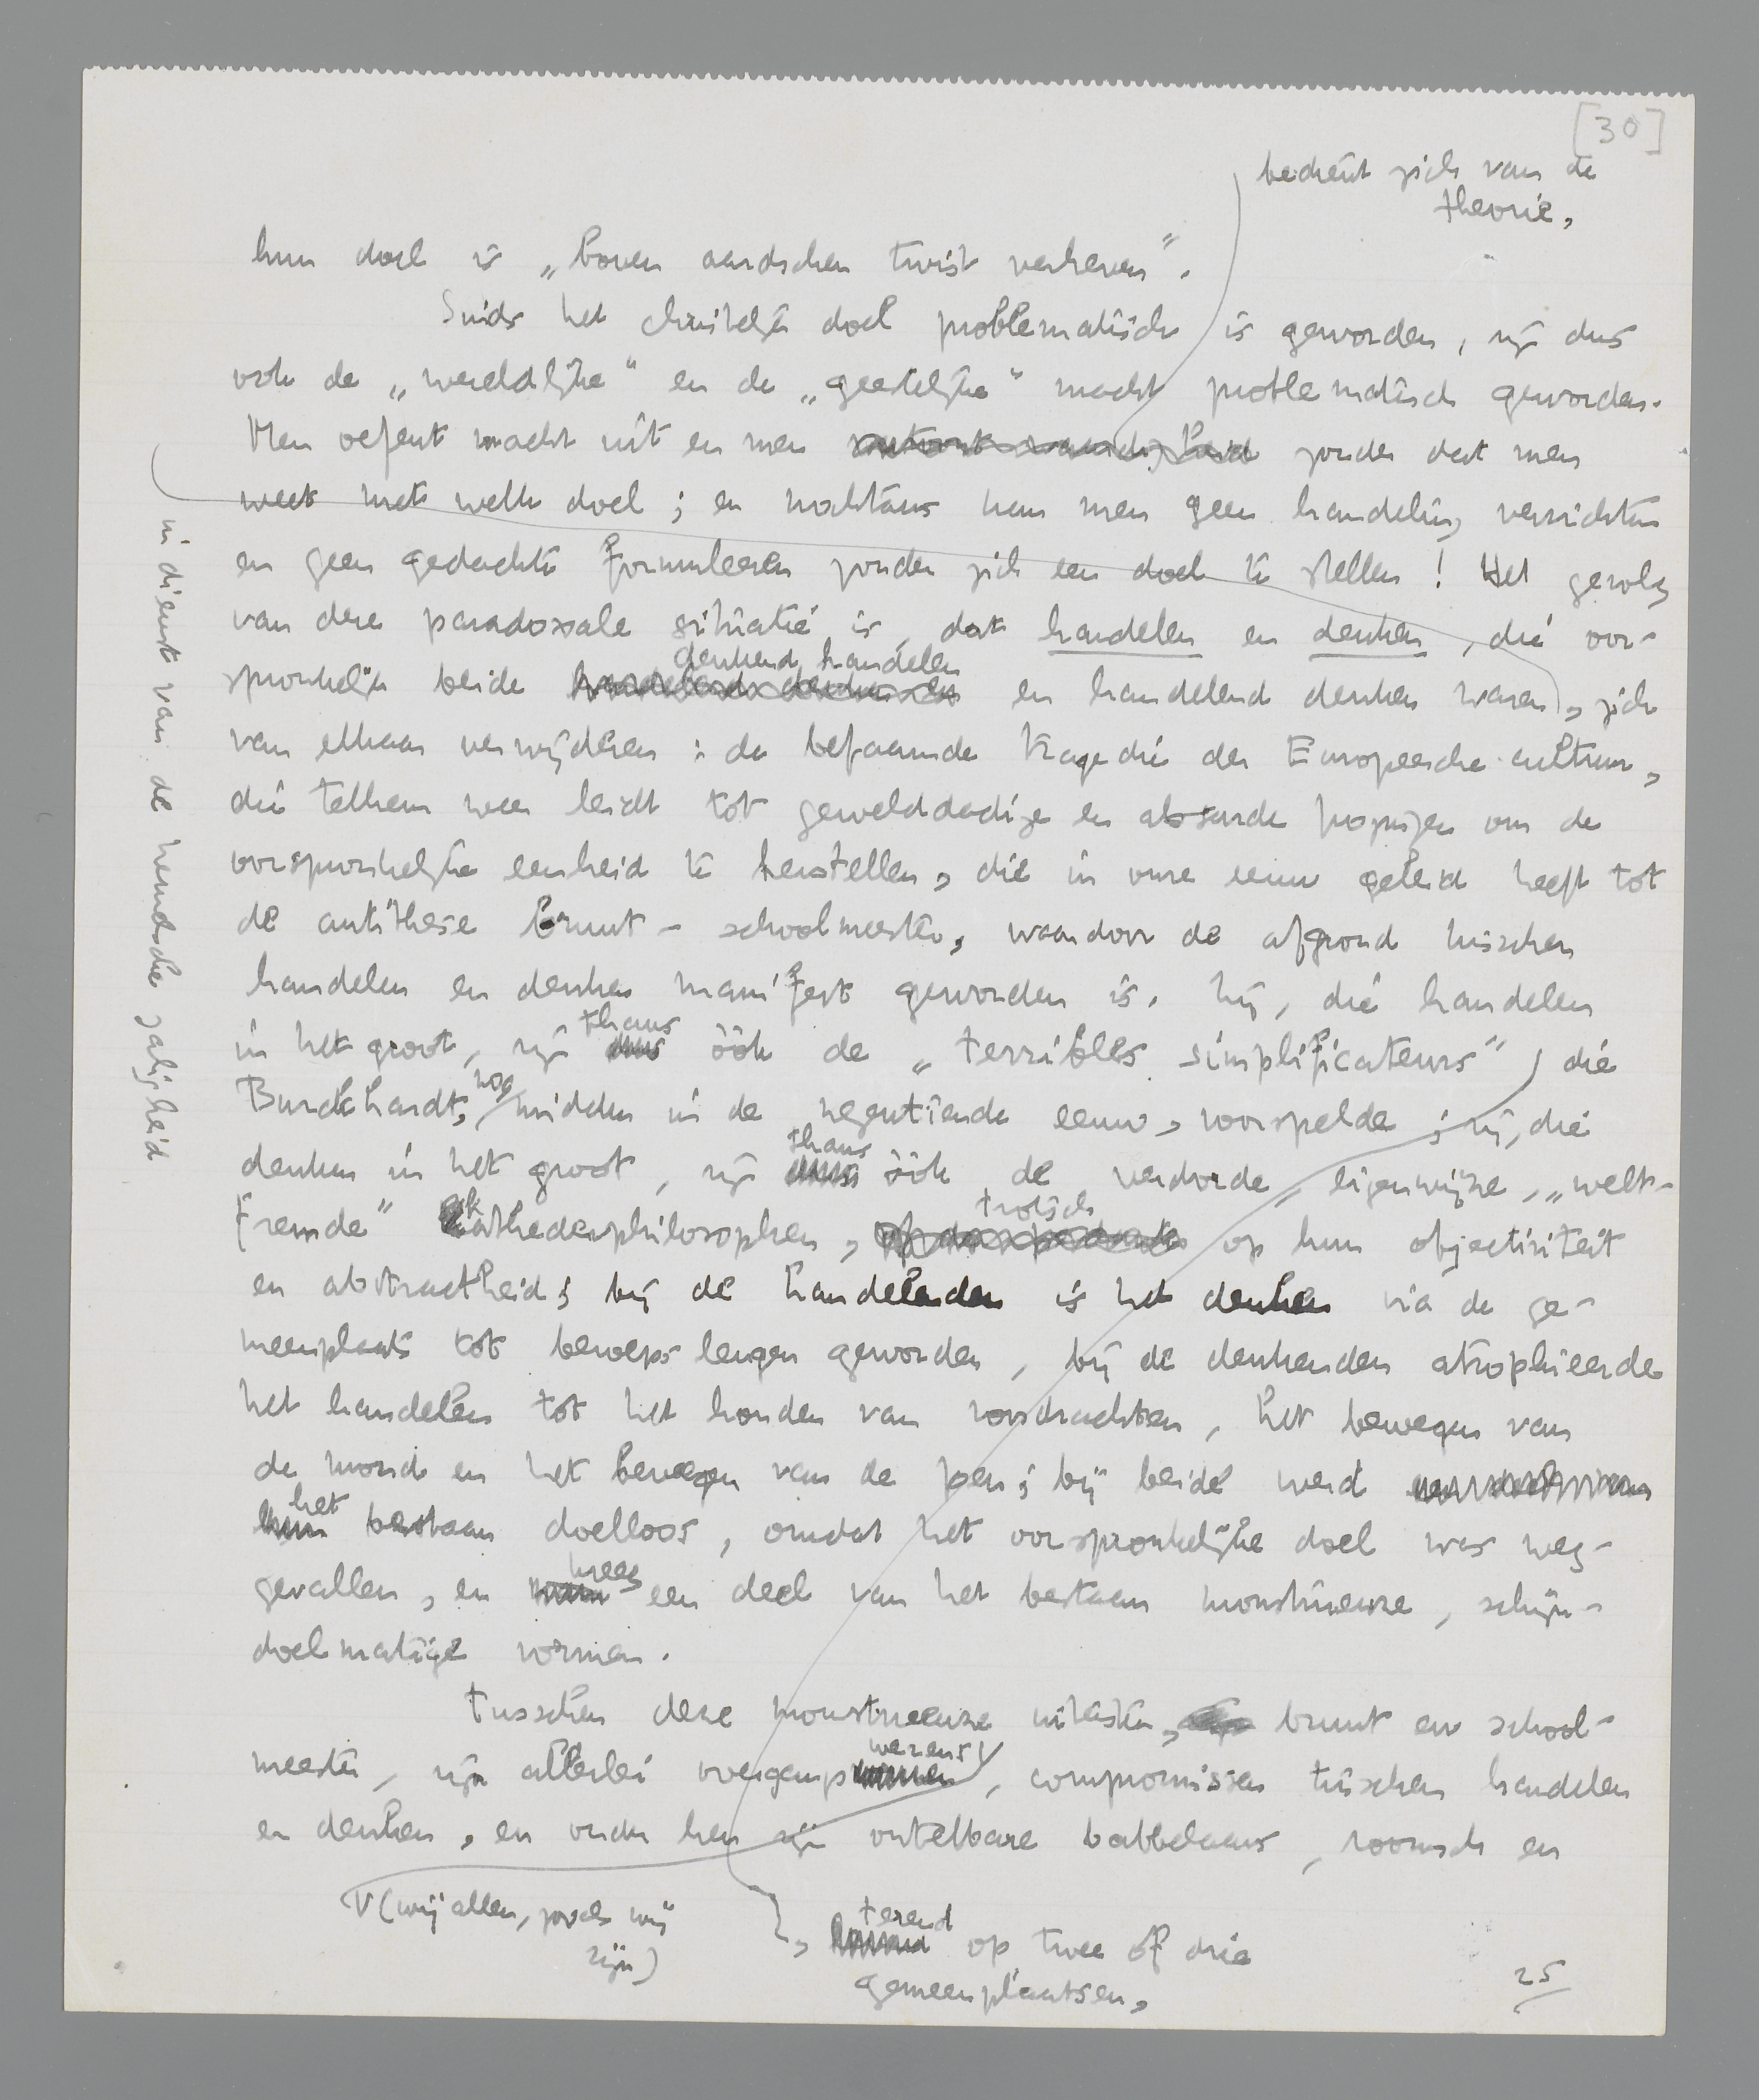 [30]
bedient zich van de
theorie,
hun doel is „boven aardschen twist verheven”.
Sinds het christelijk doel problematisch is geworden, zijn dus
ook de „wereldlijke” en de „geestelijke” macht problematisch geworden.
Men oefent macht uit en men zonder dat men
weet met welk doel; en nochtans kan men geen handeling verrichten
en geen gedachte formuleeren zonder zich een doel te stellen! Het gevolg
van deze paradoxale situatie is, dat handelen en denken, die oor-
denkend handelen
spronkelijk beide en handelend denken waren, zich
van elkaar verwijderen: de befaamde tragedie der Europeesche cultuur,
die telkens weer leidt tot gewelddadige en absurde pogingen om de
oorspronkelijke eenheid te herstellen, die in onze eeuw geleid heeft tot
de antithese bruut - schoolmeester, waardoor de afgrond tusschen
handelen en denken manifest geworden is. Zij, die handelen
thans
in het groot, zijn dus óók de „terribles simplificateurs”, die
nog
Burckhardt, midden in de negentiende eeuw, voorspelde; zij, die
thans
denken in het groot, zijn dus óók de verdorde, eigenwijze, „welt-
trotsch
fremde” kathederphilosophen, op hun objectiviteit
en abstractheid; bij de handelenden is het denken via de ge-
meenplaats tot beroepsleugen geworden, bij de denkenden atrophieerde
het handelen tot het houden van voordrachten, het bewegen van
de mond en het bewegen van de pen; bij beide werd
het
hun bestaan doelloos, omdat het oorspronkelijke doel was weg-
kreeg
gevallen, en een deel van het bestaan monstrueuze, schijn-
doelmatige vormen.
Tusschen deze monstrueuze uitersten, bruut en school-
wezens
meester, zijn allerlei overgangsvormen, compromissen tusschen handelen
en denken, en onder hen zijn ontelbare babbelaars, roomsch en
V (wij allen, zooals wij
zijn)
terend
, op twee of drie
gemeenplaatsen,
25
in dienst van de hemelsche zaligheid